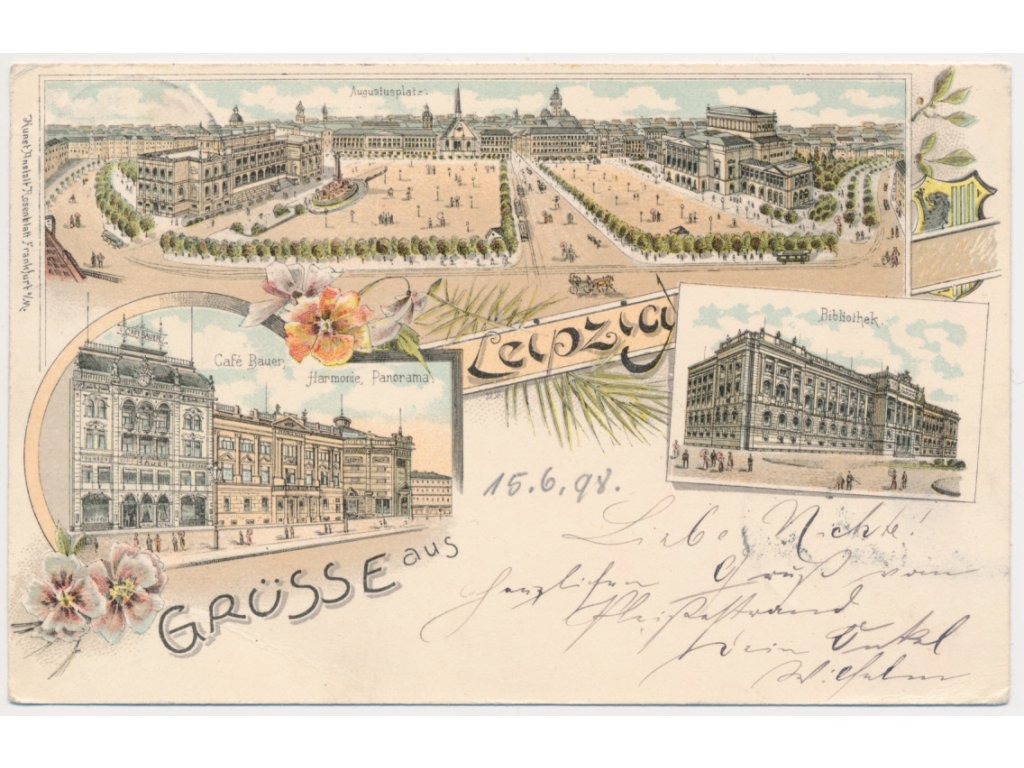 Augustusplatz.
Kunst-Anstalt Rosenblatt Frankfurt a/M.
Leipzig
Bibliothek.
CAFÉ BAUER
Café Bauer,
Harmonie, Panorama.
GRÜSSE aus
15.6.98.
Liebe Nichte!
herzlichen Gruß vom
Pleißestrand
Dein Onkel
Wilhelm